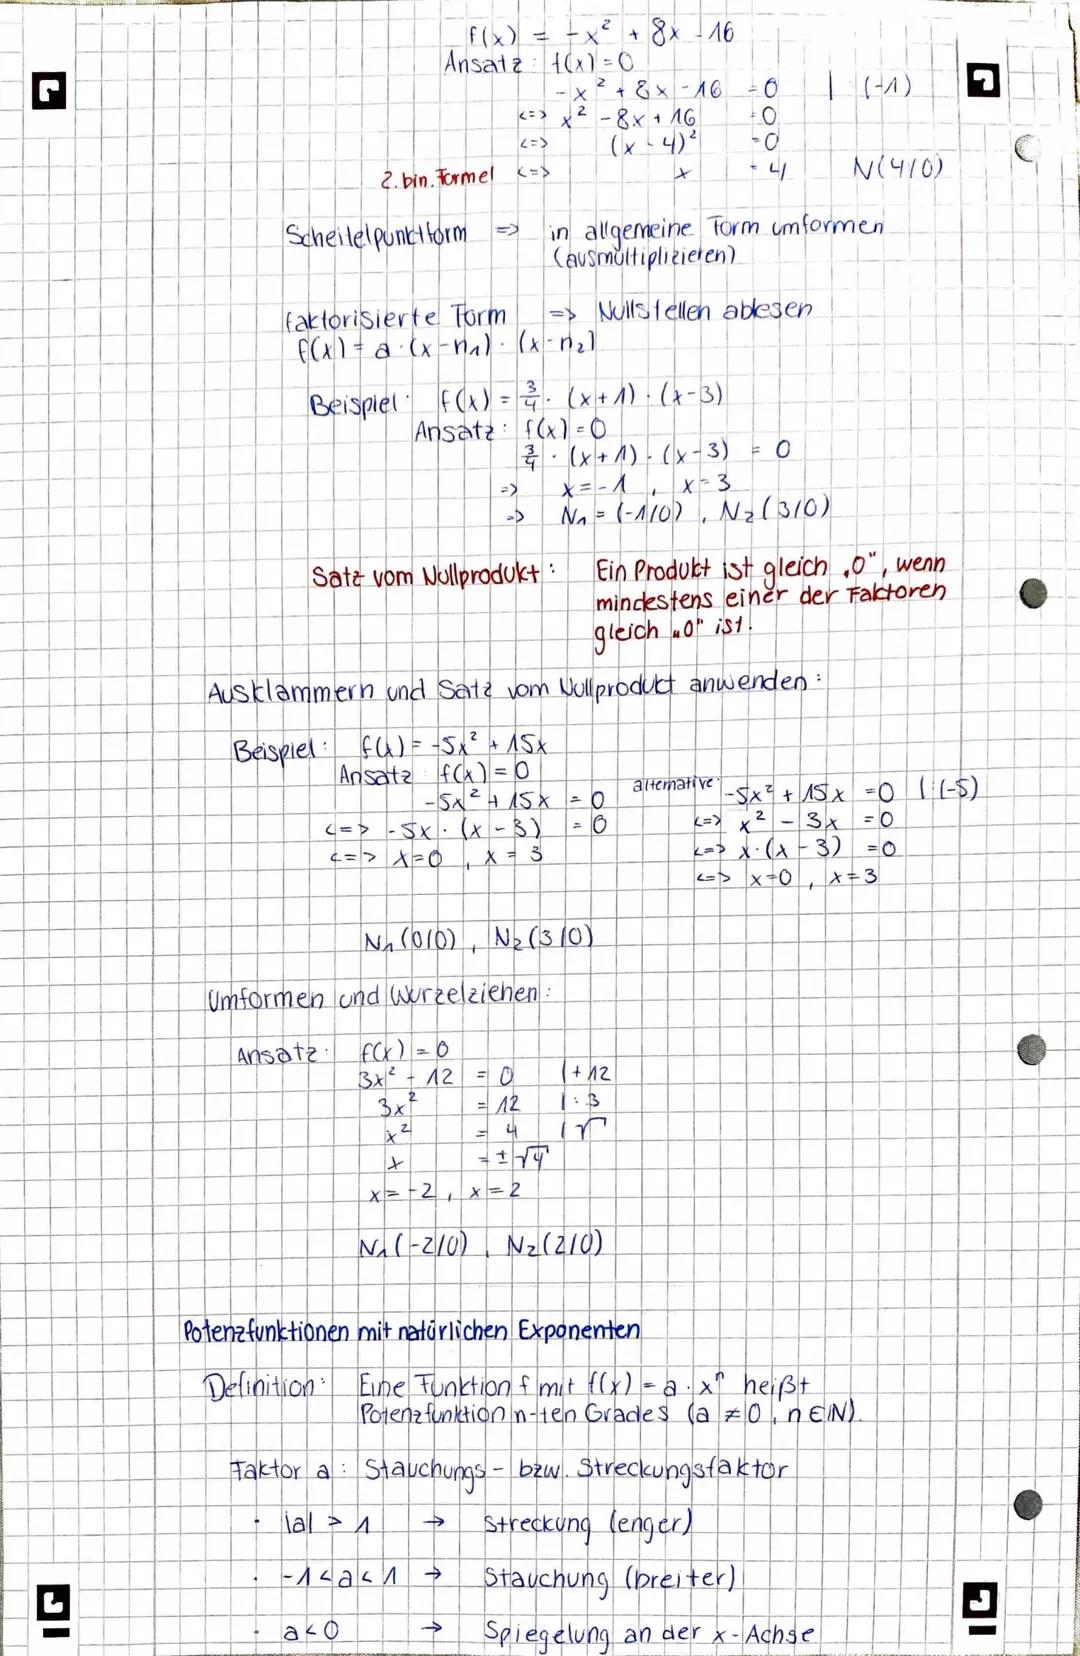 f(x) = -x² + 8x - 16
Ansatz: f(x) = 0
-x² + 8x - 16 = 0 | : (-1)
<=> x² - 8x + 16 = 0
<=> (x - 4)² = 0
2. bin. Formel <=> x = 4 N(4/0)
Scheitelpunktform => in allgemeine Form umformen
(ausmultiplizieren)
faktorisierte Form => Nullstellen ablesen
f(x) = a · (x - n₁) · (x - n₂)
Beispiel: f(x) = 3/4 · (x+1) · (x-3)
Ansatz: f(x) = 0
3/4 · (x+1) · (x-3) = 0
=> x = -1 , x = 3
=> N₁ = (-1/0) , N₂(3/0)
Satz vom Nullprodukt: Ein Produkt ist gleich „0", wenn
mindestens einer der Faktoren
gleich „0" ist.
Ausklammern und Satz vom Nullprodukt anwenden:
Beispiel: f(x) = -5x² + 15x
Ansatz f(x) = 0
-5x² + 15x = 0
<=> -5x · (x - 3) = 0
<=> x = 0 , x = 3
alternative: -5x² + 15x = 0 | : (-5)
<=> x² - 3x = 0
<=> x · (x - 3) = 0
<=> x = 0 , x = 3
N₁(0/0) , N₂(3/0)
Umformen und Wurzelziehen:
Ansatz: f(x) = 0
3x² - 12 = 0 | + 12
3x² = 12 | : 3
x² = 4 | √
x = ±√4
x = -2 , x = 2
N₁(-2/0) , N₂(2/0)
Potenzfunktionen mit natürlichen Exponenten
Definition: Eine Funktion f mit f(x) = a · xⁿ heißt
Potenzfunktion n-ten Grades (a ≠ 0 , n ∈ ℕ).
Faktor a: Stauchungs- bzw. Streckungsfaktor
· |a| > 1 → Streckung (enger)
· -1 < a < 1 → Stauchung (breiter)
· a < 0 → Spiegelung an der x-Achse